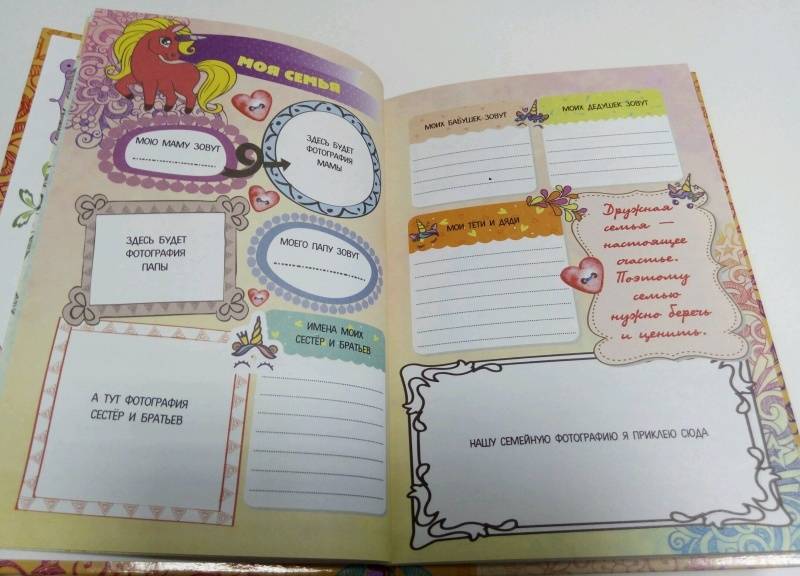 МОЯ СЕМЬЯ
МОЮ МАМУ ЗОВУТ
ЗДЕСЬ БУДЕТ
ФОТОГРАФИЯ
МАМЫ
ЗДЕСЬ БУДЕТ
ФОТОГРАФИЯ
ПАПЫ
МОЕГО ПАПУ ЗОВУТ
ИМЕНА МОИХ
СЕСТЁР И БРАТЬЕВ
А ТУТ ФОТОГРАФИЯ
СЕСТЁР И БРАТЬЕВ
МОИХ БАБУШЕК ЗОВУТ
МОИХ ДЕДУШЕК ЗОВУТ
МОИ ТЕТИ И ДЯДИ
Дружная
семья —
настоящее
счастье.
Поэтому
семью
нужно беречь
и ценить.
НАШУ СЕМЕЙНУЮ ФОТОГРАФИЮ Я ПРИКЛЕЮ СЮДА